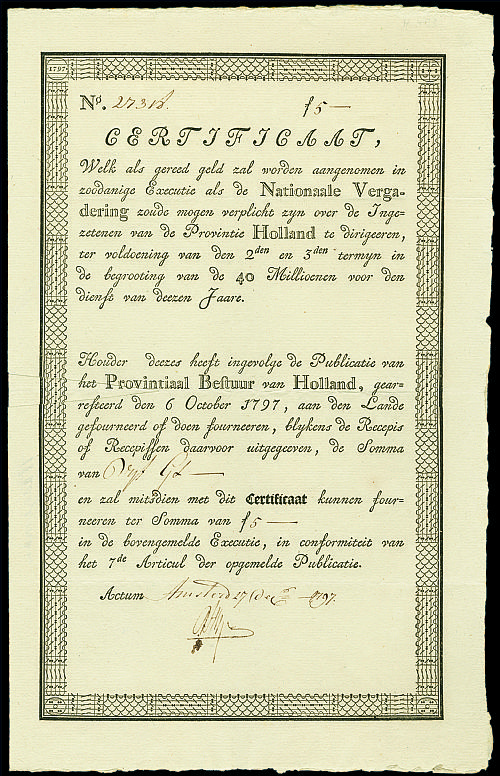 1797
No. 27318. f5—
CERTIFICAAT,
Welk als gereed geld zal worden aangenomen in
zoodanige Executie als de Nationaale Verga-
dering zoude mogen verplicht zyn over de Inge-
zetenen van de Provintie Holland te dirigeeren,
ter voldoening van den 2den en 3den termyn in
de begrooting van de 40 Millioenen voor den
dienst van deezen Jaare.
Houder deezes heeft ingevolge de Publicatie van
het Provintiaal Bestuur van Holland, gear-
resteerd den 6 October 1797, aan den Lande
gefourneerd of doen fourneeren, blykens de Recepis
of Recepissen daarvoor uitgegeeven, de Somma
van
en zal mitsdien met dit Certificaat kunnen four-
neeren ter Somma van f5—
in de bovengemelde Executie, in conformiteit van
het 7de Articul der opgemelde Publicatie.
Actum Amsterd 1797